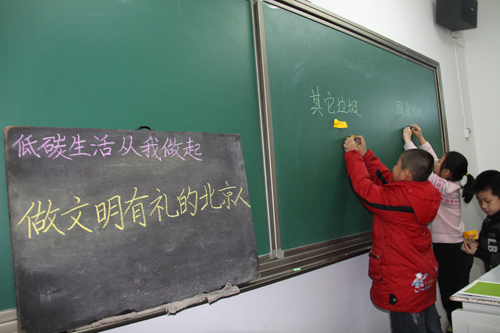 低碳生活从我做起
做文明有礼的北京人
其它垃圾